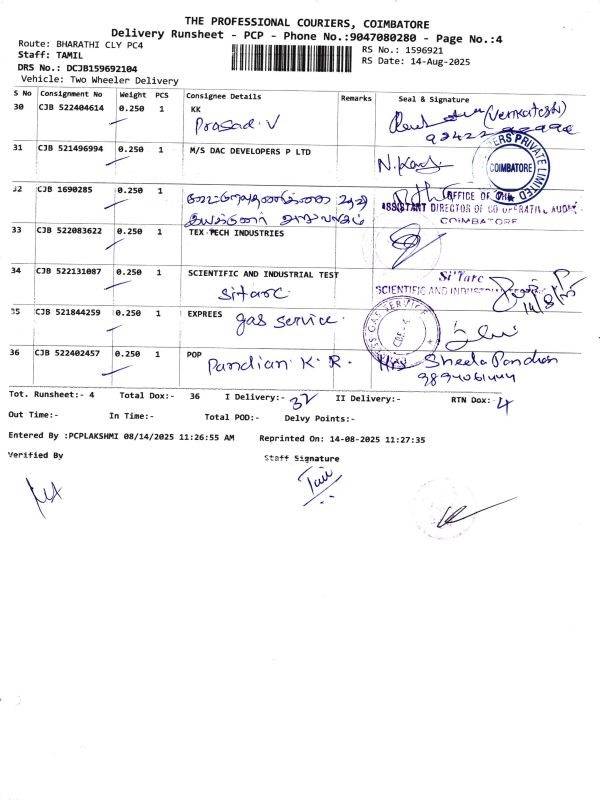 THE PROFESSIONAL COURIERS, COIMBATORE
Delivery Runsheet - PCP - Phone No.:9047080280 - Page No.:4
Route: BHARATHI CLY PC4 RS No.: 1596921
Staff: TAMIL RS Date: 14-Aug-2025
DRS No.: DCJB159692104
Vehicle: Two Wheeler Delivery
S No Consignment No Weight PCS Consignee Details Remarks Seal & Signature
30 CJB 522404614 0.250 1 KK (Venkatesh)
Prasad. V
31 CJB 521496994 0.250 1 M/S DAC DEVELOPERS P LTD
COIMBATORE
32 CJB 1690285 0.250 1 OFFICE OF THE
ASSISTANT DIRECTOR OF CO OPERATIVE AUDIT
COIMBATORE
33 CJB 522083622 0.250 1 TEX TECH INDUSTRIES
34 CJB 522131087 0.250 1 SCIENTIFIC AND INDUSTRIAL TEST Si'Tarc
Sitarc 14/8/25
35 CJB 521844259 0.250 1 EXPREES GAS SERVICE
gas service.
36 CJB 522402457 0.250 1 POP Mrs Sheela Pandian
Pandian K. R. 9894061444
Tot. Runsheet:- 4 Total Dox:- 36 I Delivery:- 32 II Delivery:- RTN Dox:- 4
Out Time:- In Time:- Total POD:- Delvy Points:-
Entered By :PCPLAKSHMI 08/14/2025 11:26:55 AM Reprinted On: 14-08-2025 11:27:35
Verified By Staff Signature